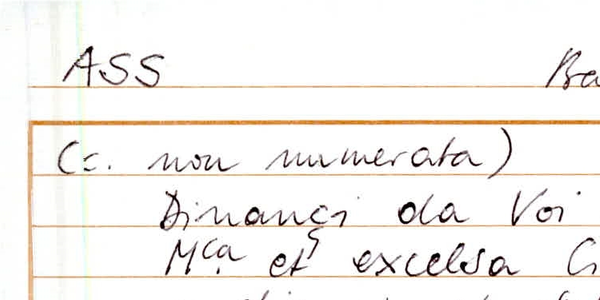 ASS
(c. non numerata)
Dinançi da Voi
M.ca et excelsa